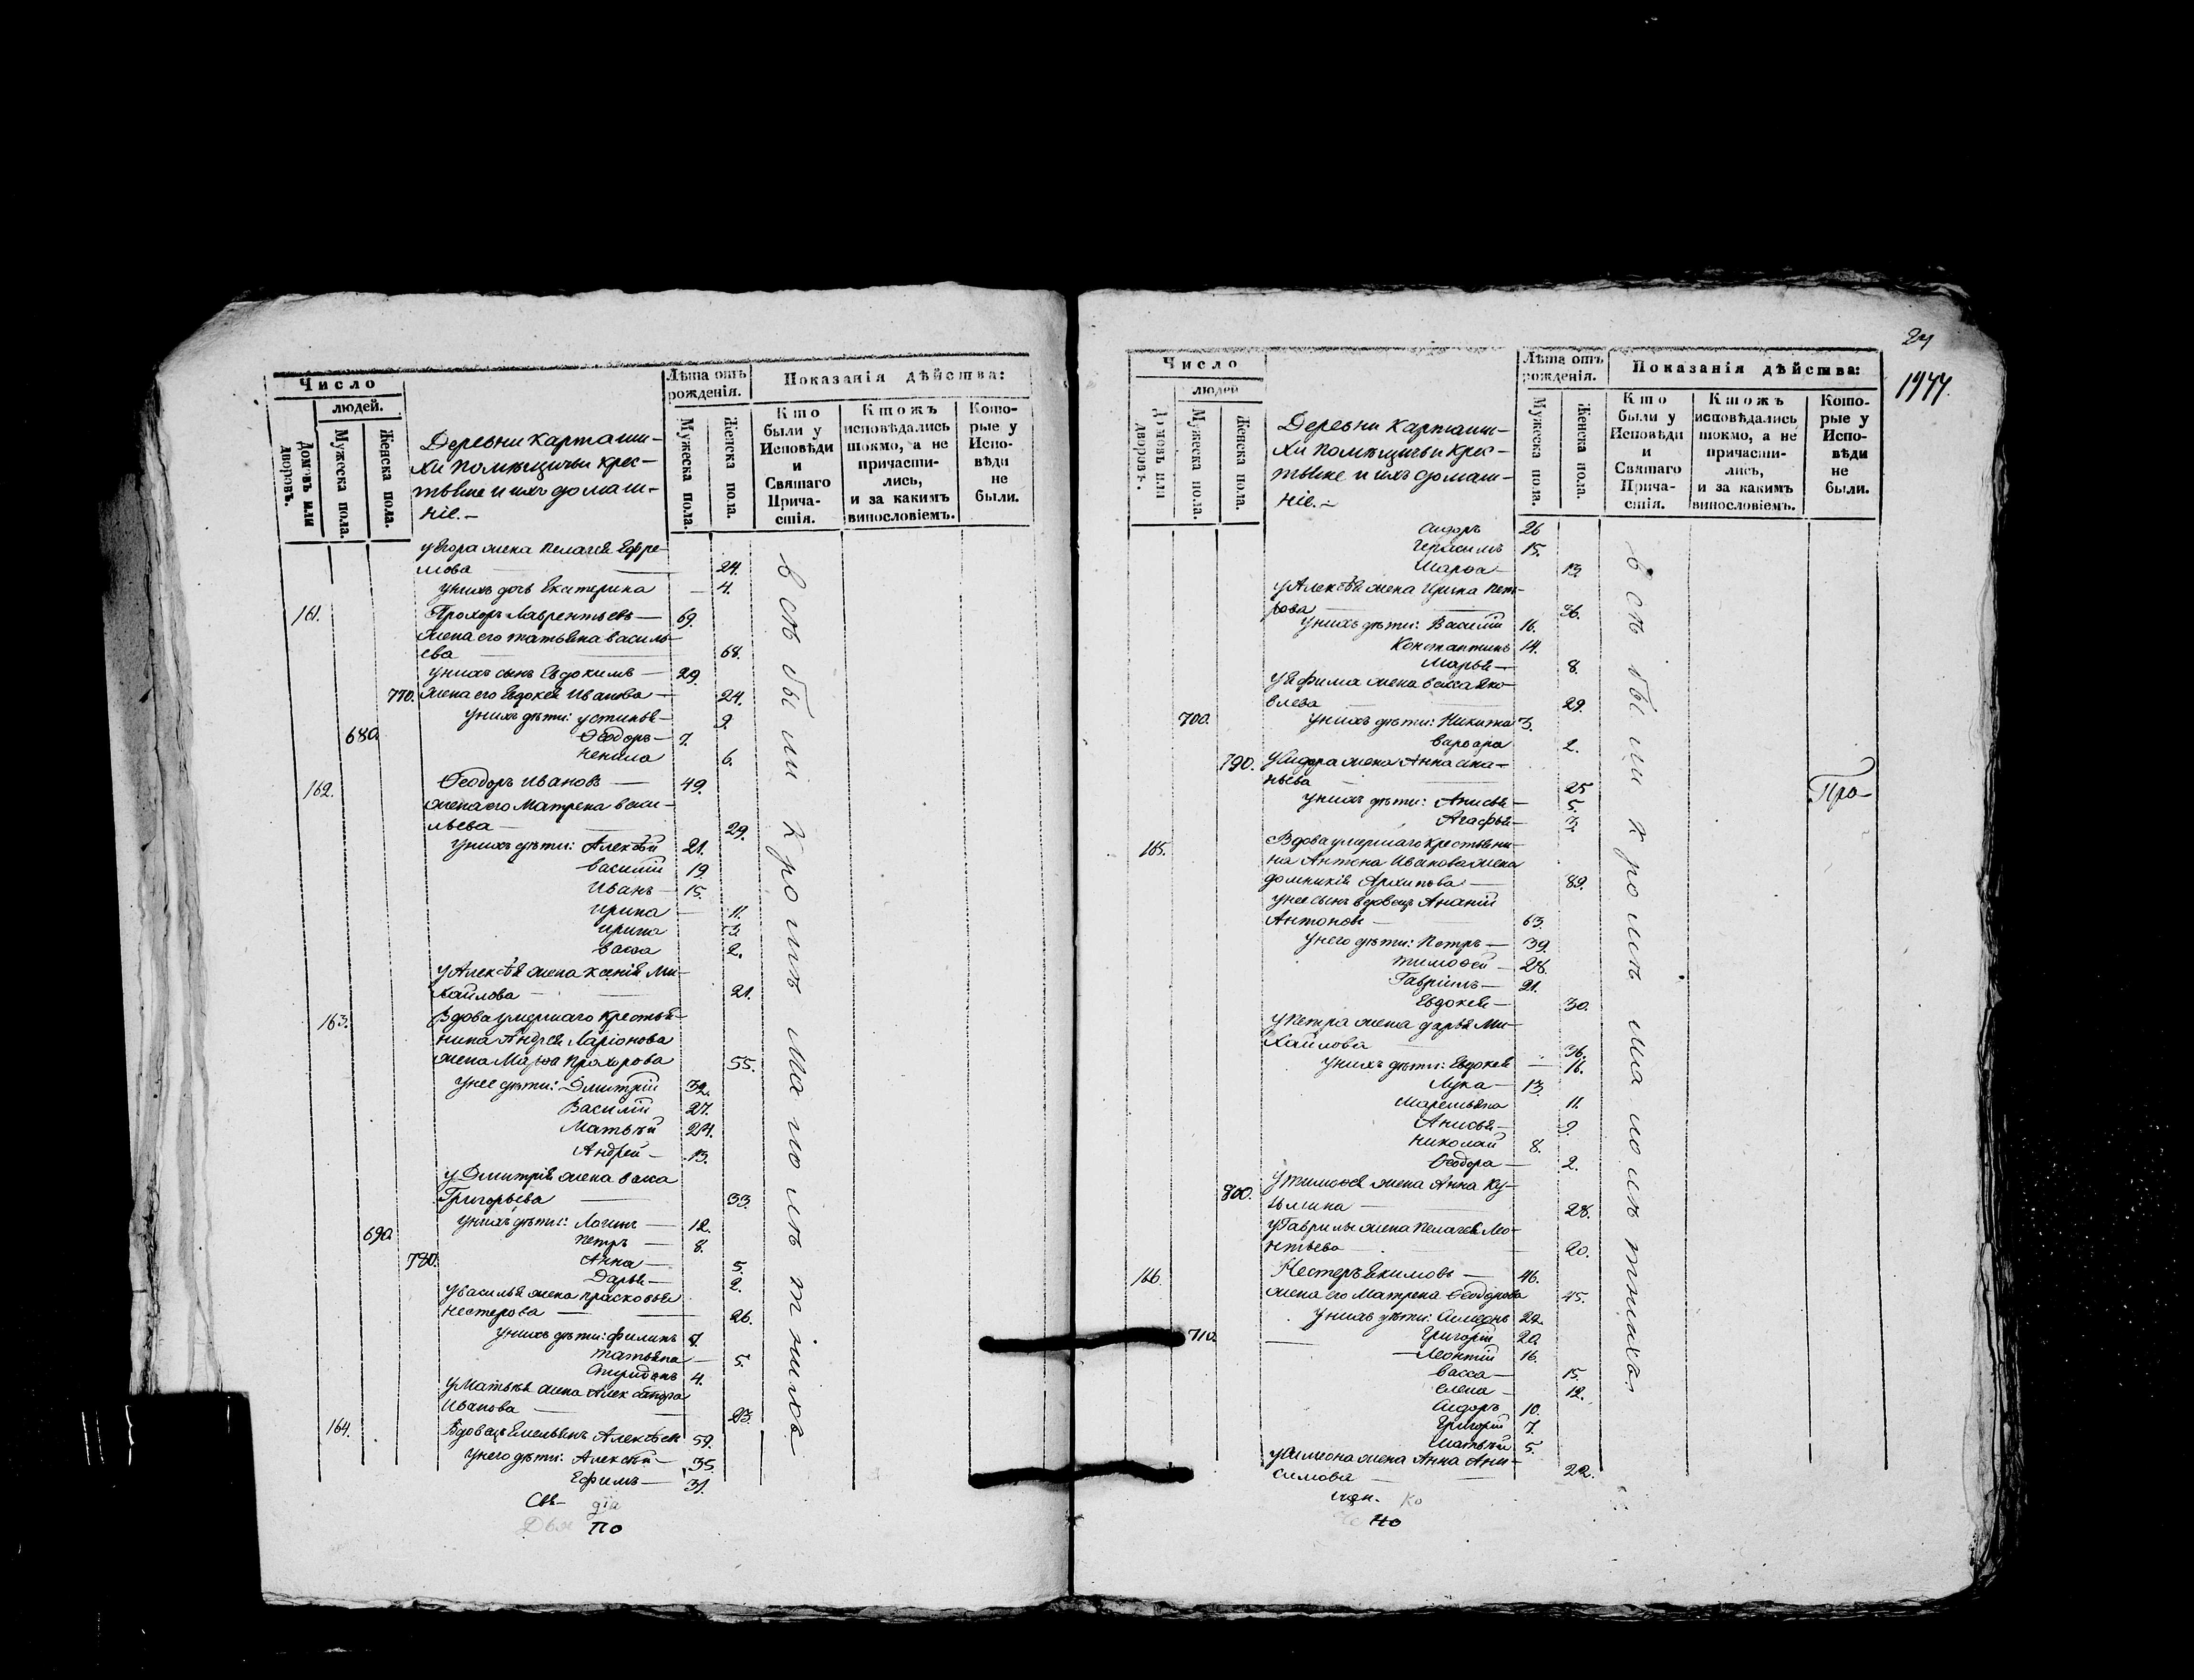 Число
людей.
Домовъ или дворовъ.
Мужеска пола.
Женска пола.
Деревни Карташи-
хи помѣщичьи крес-
тьяне и ихъ домаш-
ніе.-
Лѣта отъ
рожденія.
Мужеска пола.
Женска пола.
Показанія дѣйства:
Кто
были у
Исповѣди
и
Святаго
Прича-
стія.
Ктожъ
исповѣдались
токмо, а не
причасти-
лись,
и за какимъ
винословіемъ.
Кото-
рые у
Испо-
вѣди
не
были.
у Егора жена Пелагея Ефре-
мова — 24.
у нихъ дочь Екатерина — 4.
161. Прохоръ Лаврентьевъ — 69.
жена его Татьяна Василь-
ева — 68.
у нихъ сынъ Евдокимъ — 29.
770. жена его Евдокея Иванова — 24.
у нихъ дѣти: Устинья — 9.
680. Ѳеодоръ — 7.
Ненила 6.
162. Ѳеодоръ Ивановъ — 49.
жена его Матрена Васи-
льева — 29.
у нихъ дѣти: Алексѣй 21.
Василій 19.
Иванъ — 15.
Ирина — 11.
Ирина 3.
Васса 2.
у Алексѣя жена Ксенія Ми-
хайлова — 21.
163. Вдова умершаго крестья-
нина Андрея Ларіонова
жена Марѳа Прохорова 55.
у нее дѣти: Дмитрій 32.
Василій 27.
Матвѣй 24.
Андрей — 13.
у Дмитрія жена Васса
Григорьева — 33.
у нихъ дѣти: Логинъ — 12.
690. Петръ — 8.
780. Анна — 5.
Дарья — 2.
у Василья жена Прасковья
Нестерова — 26.
у нихъ дѣти: Филипъ 7.
Татьяна — 5.
Спиридонъ 4.
у Матвѣя жена Александра
Иванова — 23.
164. Вдовецъ Емельянъ Алексѣевъ 59.
у него дѣти: Алексѣй — 35.
Ефимъ — 31.
всѣ были кромѣ малолѣтнихъ
Свя- дія
Дья по
24
1977.
Число
людей
Домовъ или дворовъ.
Мужеска пола.
Женска пола.
Деревни Карташи-
хи помѣщичьи крес-
тьяне и ихъ домаш-
ніе.-
Лѣта отъ
рожденія.
Мужеска пола.
Женска пола.
Показанія дѣйства:
Кто
были у
Исповѣди
и
Святаго
Прича-
стія.
Ктожъ
исповѣдались
токмо, а не
причасти-
лись,
и за какимъ
винословіемъ.
Кото-
рые у
Испо-
вѣди
не
были.
Сидоръ 26
Герасимъ 15.
Марѳа — 13
у Алексѣя жена Ирина Пет-
рова — 36.
у нихъ дѣти: Василій 16.
Константинъ 14.
Марья — 8.
у Ефима жена Васса Яко-
влева — 29.
700. у нихъ дѣти: Никита 3.
Варвара 2.
790. у Сидора жена Анна Ана-
ньева — 25
у нихъ дѣти: Анисья — 5.
Агафья — 3.
165. Вдова умершаго крестьяни-
на Антона Иванова жена
Домникія Архипова — 89.
у нее сынъ вдовецъ Ананій
Антоновъ — 63.
у него дѣти: Петръ — 39.
Тимоѳей — 28.
Гавріилъ — 21.
Евдокея — 30.
у Петра жена Дарья Ми-
хайлова 36.
у нихъ дѣти: Евдокея — 16.
Лука — 13.
Маремьяна 11.
Анисья — 9.
Николай 8.
Ѳеодора — 2.
у Тимоѳея жена Анна Ку-
800. зьмина — 28.
у Гаврилы жена Пелагея Ле-
онтьева — 20.
166. Нестеръ Якимовъ — 46.
жена его Матрена Ѳеодорова 45.
у нихъ дѣти: Симеонъ 22.
710. Григорій 20.
Леонтій 16.
Васса — 15.
Елена — 12.
Сидоръ 10.
Григорій 7.
Матвѣй 5.
у Симеона жена Анна Ани-
симова — 22.
всѣ были кромѣ малолѣтнихъ
Про-
щен. ко
но